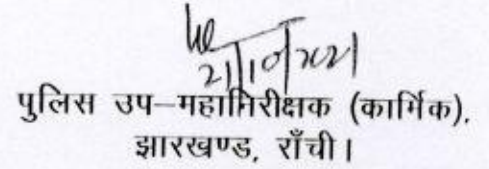 21/10/2021
पुलिस उप–महानिरीक्षक (कार्मिक),
झारखण्ड, राँची।